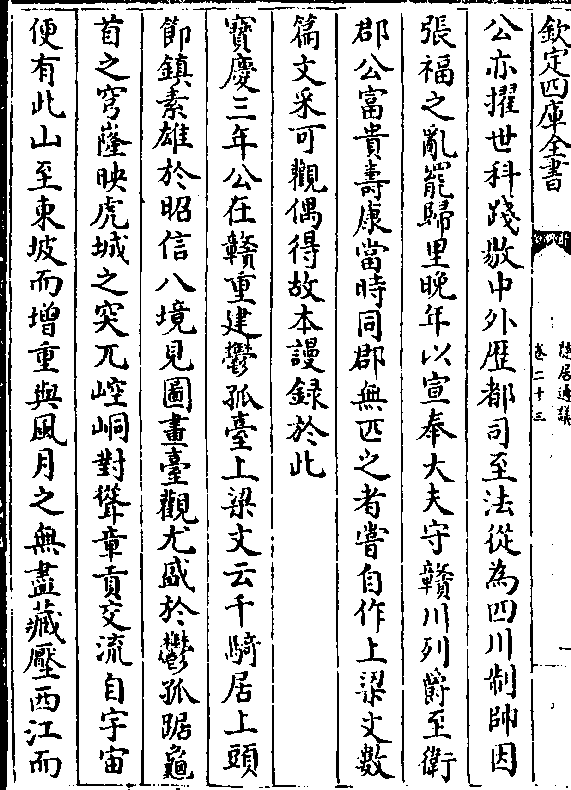 欽定四庫全書
隱居通議
卷二十三
公亦擢世科踐敭中外歴都司至法從為四川制帥因
張福之亂罷歸里晚年以宣奉大夫守贛川列爵至衛
郡公富貴壽康當時同郡無匹之者嘗自作上梁文數
篇文采可觀偶得故本謾録於此
寳慶三年公在贛重建鬱孤臺上梁文云千騎居上頭
節鎮素雄於昭信八境見圖畫臺觀尤盛於鬱孤踞龜
首之穹窿映虎城之突兀崆峒對聳章貢交流自宇宙
便有此山至東坡而增重與風月之無盡藏壓西江而